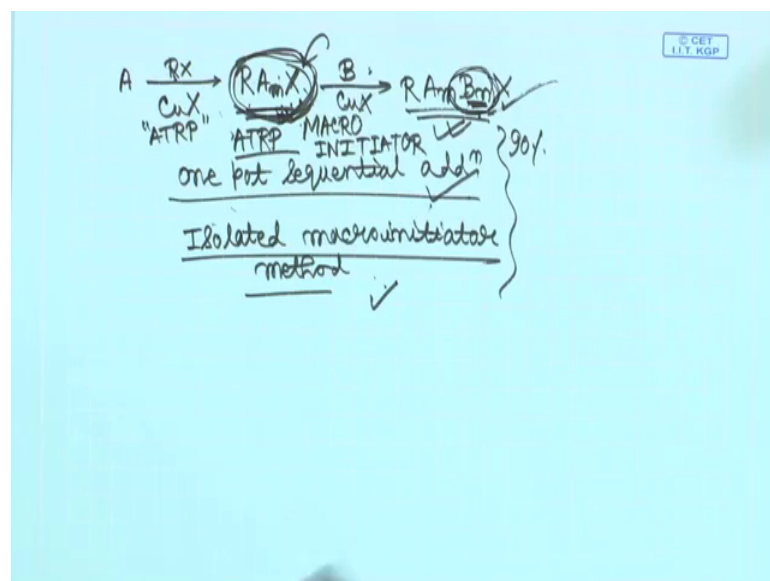 © CET
I.I.T. KGP
A RX RAmX B RAmBmX
CuX CuX
"ATRP" ATRP MACRO
INITIATOR 90%
one pot sequential addⁿ
Isolated macroinitiator
method